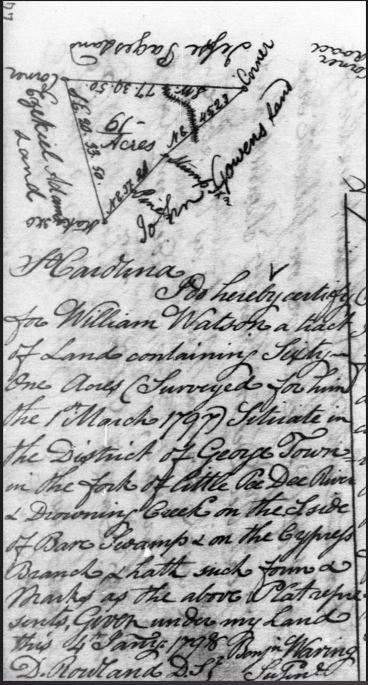 Jesse Pages Land
Corner
Corner
Corner
Road
77.30.50.
S W.
45.23
N E
61
Acres
Ezekiel Adams
Land
Stake 3XO
John Gowens Land
S Carolina
I do hereby certify
for William Watson a tract
of Land containing Sixty
One Acres (Surveyed for him
the 1st March 1797) Situate in
the District of George Town
in the fork of little Pee Dee River
& Drowning Creek on the S side
of Bare Swamp & on the Cypress
Branch & hath such form &
Marks as the above Plat repre
sents, Given under my hand
this 4th Janry. 1798 Benjn Waring
D. Rowland D.S.